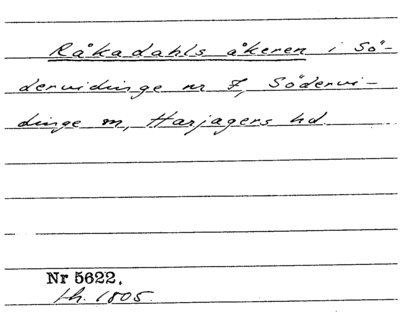 Råkadahls åkeren i Sö-
dervidinge nr 7, Södervi-
dinge sn, Harjagers hd.
Nr 5622.
th. 1805.